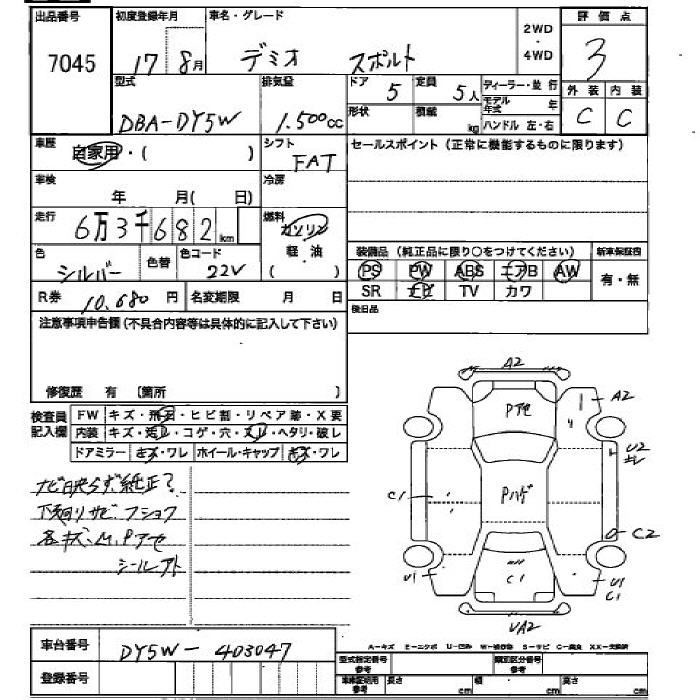 出品番号 初度登録年月 車名・グレード 評価点
7045 17 8月 デミオ スポルト 2WD・4WD 3
型式 排気量 ドア 5 定員 5人 ディーラー・並行 外装 内装
DBA-DY5W 1.500cc 形状 積載 kg モデル年式 年 C C
ハンドル 左・右
車歴 自家用・( ) シフト FAT セールスポイント(正常に機能するものに限ります)
車検 年 月( 日) 冷房
走行 6万3千682km 燃料 ガソリン
軽・油
( )
色 シルバー 色替 色コード 22V
装備品(純正品に限り○をつけてください) 新車保証書
PS PW ABS エアB AW 有・無
SR ナビ TV カワ
R券 10.680円 名変期限 月 日
後日品
注意事項申告欄(不具合内容等は具体的に記入して下さい)
修復歴 有 〔箇所 〕
検査員記入欄 FW キズ・飛石・ヒビ割・リペア跡・X要
内装 キズ・汚レ・コゲ・穴・スレ・ヘタリ・破レ
ドアミラー キズ・ワレ ホイール・キャップ キズ・ワレ
ナビ映らず純正?
下廻りサビ・フショク
各キズ・M.Pアセ
シールアト
A2
Pアセ
A2
U2
キレ
Pハゲ
C1
C2
U1
C1
U1
C1
UA2
車台番号 DY5W-403047
登録番号
A-キズ E-エクボ U-凹み W-補修跡 S-サビ C-腐食 XX-交換済
型式指定番号 参考 類別区分番号 参考
車庫証明用 参考 長さ cm 幅 cm 高さ cm